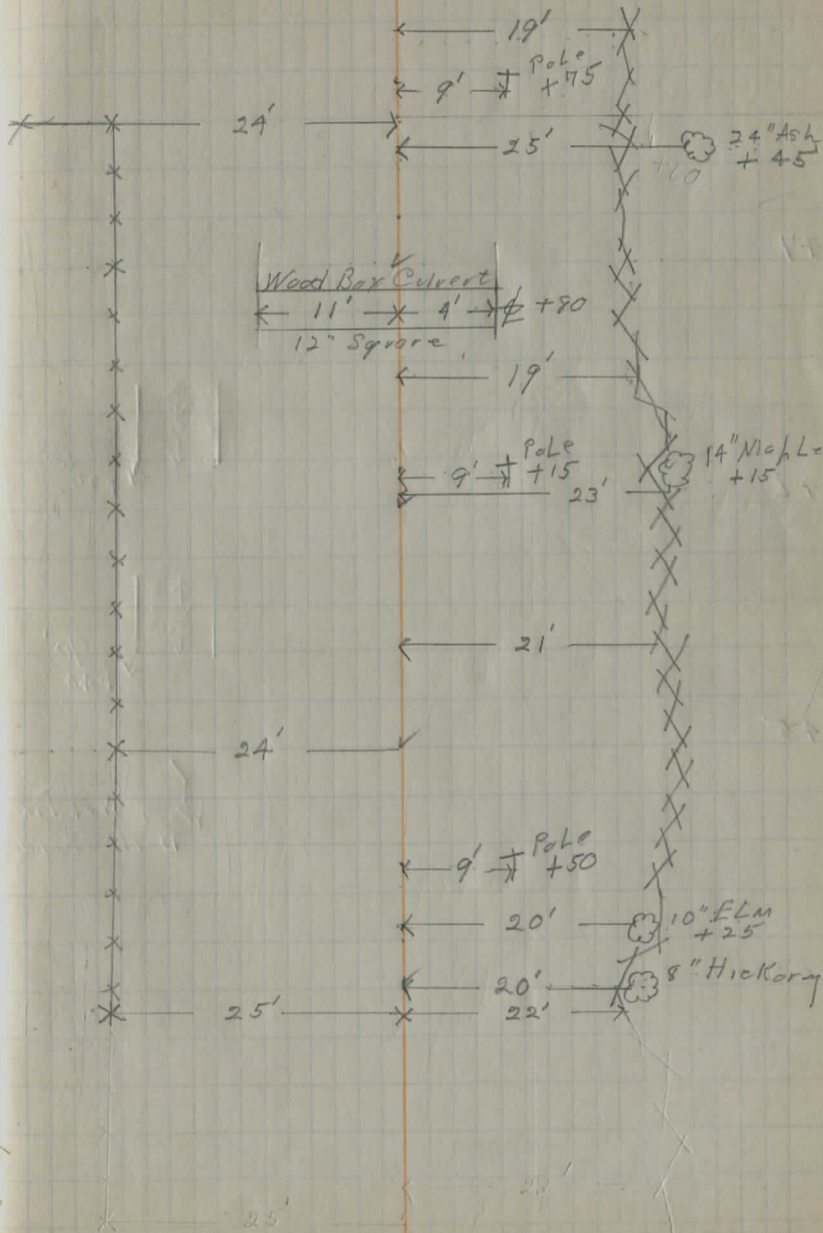 19'
Pole
9' +75
24'
25' 24" Ash
+ 45
+60
Wood Box Culvert
11' 4' ℄ +80
12" Square
19'
Pole
9' +15
14" Maple
+15
23'
21'
24'
Pole
9' +50
20' 10" ELm
+25
20' 8" Hickory
25' 22'
25'